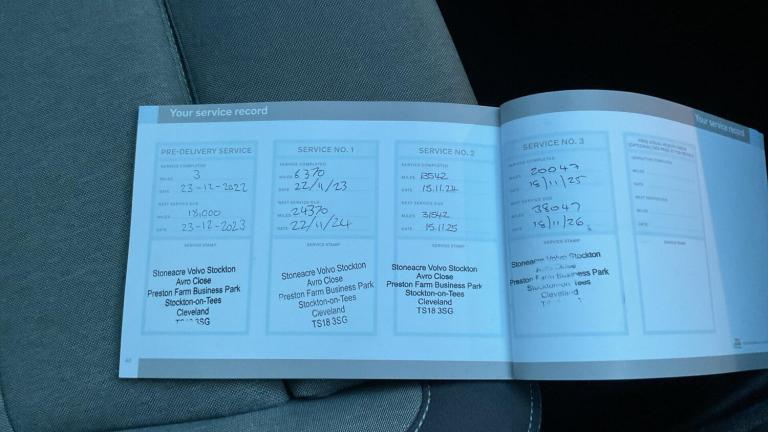 Your service record
PRE-DELIVERY SERVICE
SERVICE COMPLETED
MILES 3
DATE 23-12-2022
NEXT SERVICE DUE
MILES 18,000
DATE 23-12-2023
SERVICE STAMP
Stoneacre Volvo Stockton
Avro Close
Preston Farm Business Park
Stockton-on-Tees
Cleveland
3SG
SERVICE NO. 1
SERVICE COMPLETED
MILES 6370
DATE 22/11/23
NEXT SERVICE DUE
MILES 24370
DATE 22/11/24
SERVICE STAMP
Stoneacre Volvo Stockton
Avro Close
Preston Farm Business Park
Stockton-on-Tees
Cleveland
TS18 3SG
SERVICE NO. 2
SERVICE COMPLETED
MILES 13542
DATE 15.11.24
NEXT SERVICE DUE
MILES 31542
DATE 15.11.25
SERVICE STAMP
Stoneacre Volvo Stockton
Avro Close
Preston Farm Business Park
Stockton-on-Tees
Cleveland
TS18 3SG
60
Your service record
SERVICE NO. 3
SERVICE COMPLETED
MILES 20047
DATE 18/11/25
NEXT SERVICE DUE
MILES 38047
DATE 18/11/26
SERVICE STAMP
Stoneacre Volvo Stockton
Avro Close
Preston Farm Business Park
Stockton-on-Tees
Cleveland
MILES
DATE
MILES
DATE
SERVICE STAMP